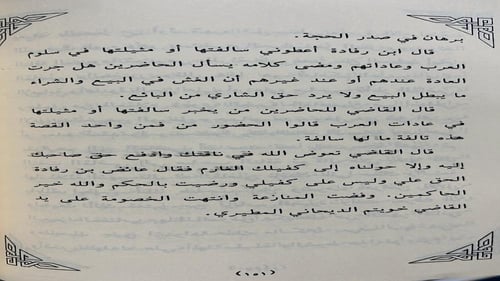 برهان في صدر الحجة.
قال ابن رفادة أعطوني سالفتها أو مثيلتها في سلوم
العرب وعاداتهم ومضى كلامه يسأل الحاضرين هل جرت
العادة عندهم أو عند غيرهم أن الغش في البيع والشراء
ما يبطل البيع ولا يرد حق الشاري من البائع.
قال القاضي للحاضرين من يخبر سالفتها أو مثيلتها
في عادات العرب قالوا الحضور من فمن واحد القصة
هذه تالفة ما لها سالفة.
قال القاضي تعوض الله في ناقتك وادفع حق صاحبك
إليه وإلا حولناه إلى كفيلك الغارم فقال عائض بن رفادة
الحق علي وليس على كفيلي ورضيت بالحكم والله خير
الحاكمين. وفضت المنازعة وانتهت الخصومة على يد
القاضي خويتم الديحاني المطيري.
(١٥١)